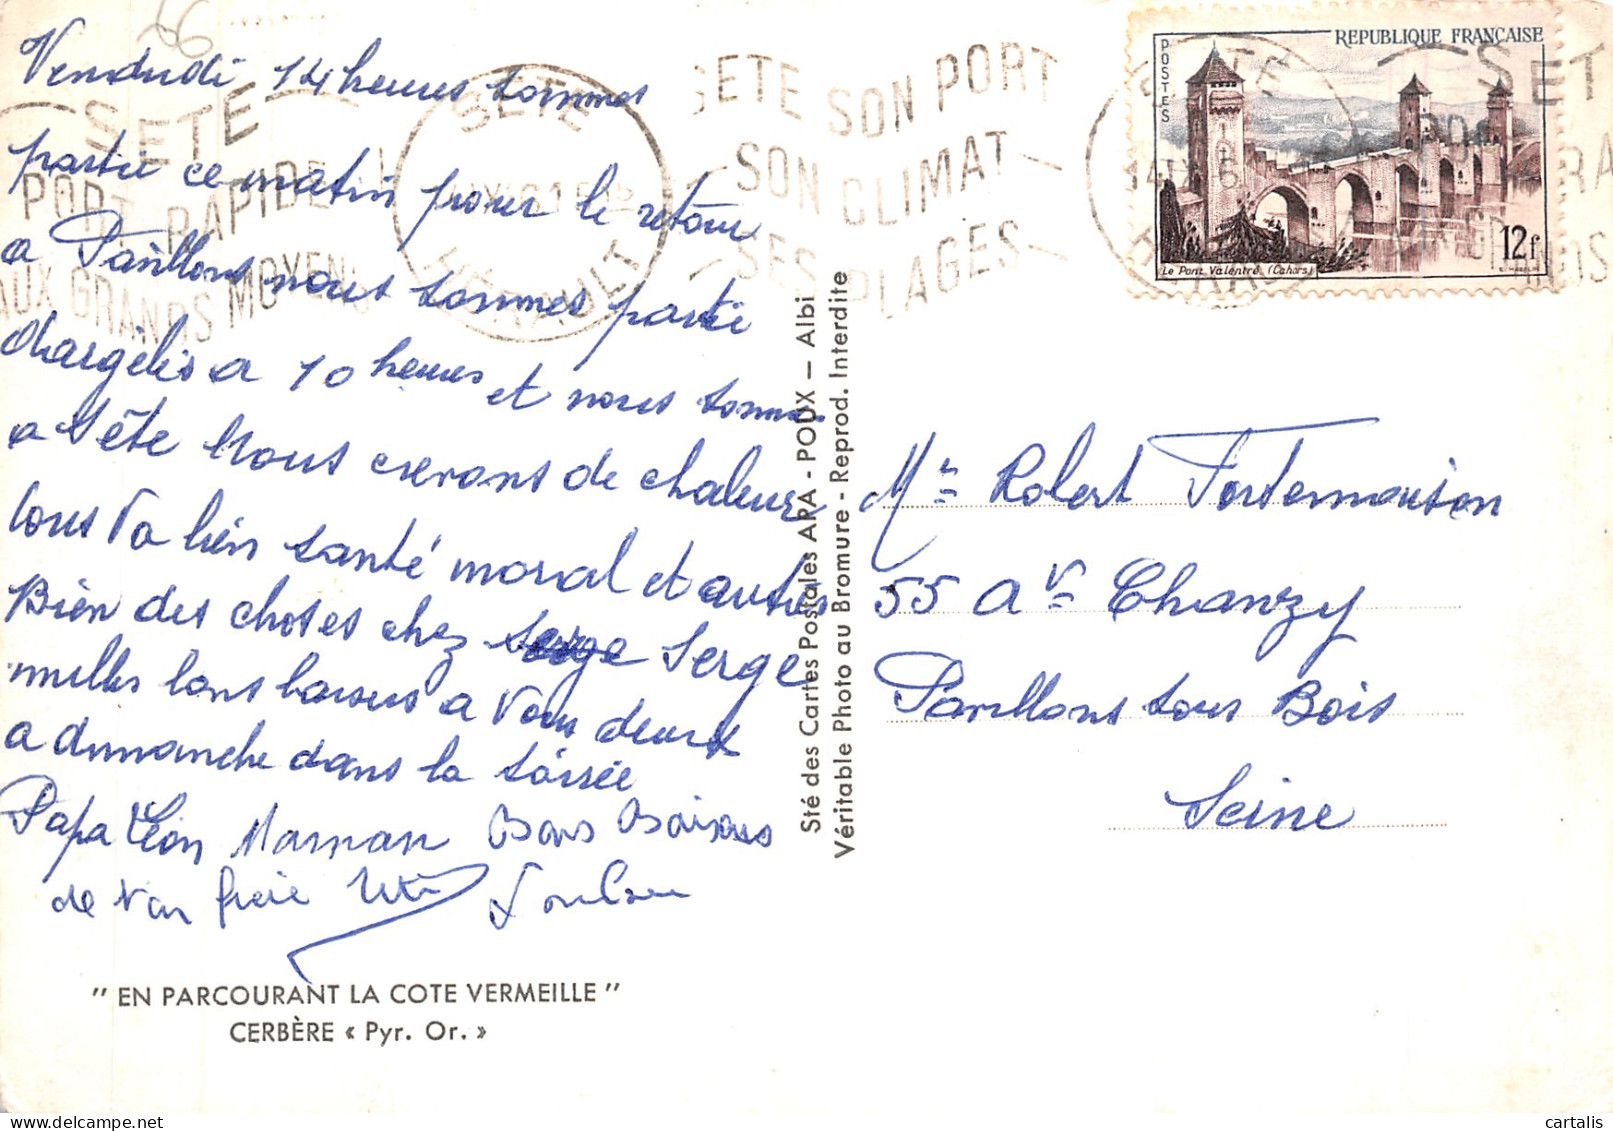 56
Vendredi 14 heures sommes
partie ce matin pour le retour
a Pavillons nous sommes partie
d'Argelès a 10 heures et nous sommes
a Sète Nous crevons de chaleur
tous va bien santé moral et autres
Bien des choses chez Serge Serge
milles bons baisers a Vous deux
a dimanche dans la soirée
Papa Léon Maman Bons Baisers
de ton frère
"EN PARCOURANT LA COTE VERMEILLE"
CERBÈRE « Pyr. Or. »
Sté des Cartes Postales APA - POUX — Albi
Véritable Photo au Bromure - Reprod. Interdite
SETE
PORT RAPIDE
AUX GRANDS MOYENS
SETE
HERAULT
SETE SON PORT
SON CLIMAT
SES PLAGES
SETE
REPUBLIQUE FRANÇAISE
POSTES
12f
Le Pont Valentré (Cahors)
Mr Robert Fortemaison
55 Av Chanzy
Pavillons sous Bois
Seine
cartalis